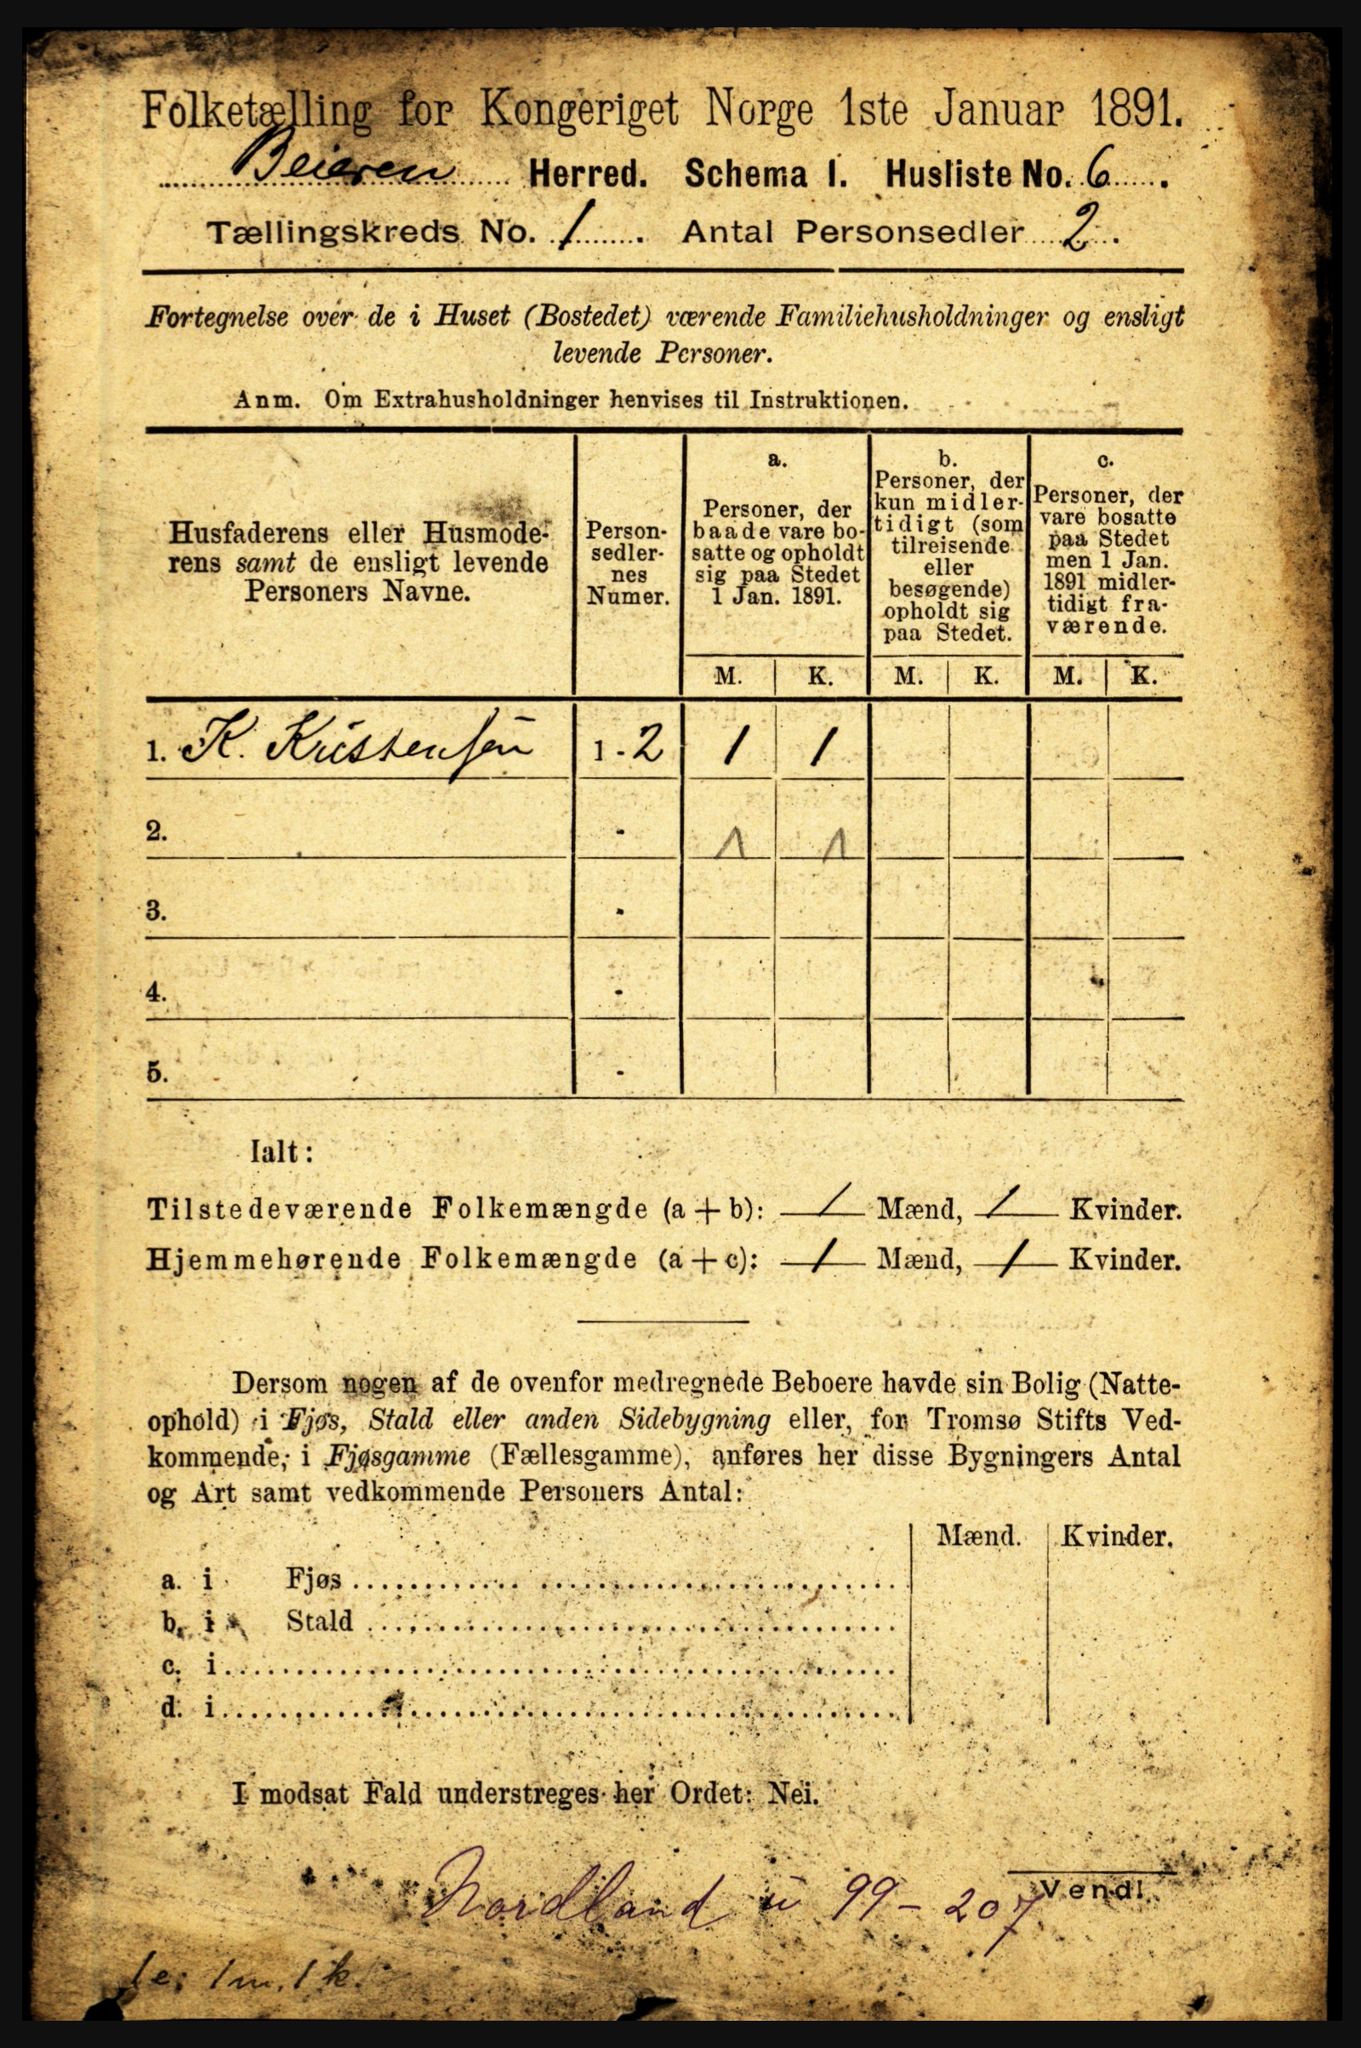 Folketælling for Kongeriget Norge 1ste Januar 1891.
Beieren Herred. Schema 1. Husliste No. 6.
Tællingskreds No. 1. Antal Personsedler 2.
Fortegnelse over de i Huset (Bostedet) værende Familiehusholdninger og ensligt
levende Personer.
Anm. Om Extrahusholdninger henvises til Instruktionen.
Husfaderens eller Husmode-
rens samt de ensligt levende
Personers Navne.
Person-
sedler-
nes
Numer.
a.
Personer, der
baade vare bo-
satte og opholdt
sig paa Stedet
1 Jan. 1891.
b.
Personer, der
kun midler-
tidigt (som
tilreisende
eller
besøgende)
opholdt sig
paa Stedet.
c.
Personer, der
vare bosatte
paa Stedet
men 1 Jan.
1891 midler-
tidigt fra-
værende.
M. K. M. K. M. K.
1. K. Kristensen 1 - 2 1 1
2. - 1 1
3. -
4. -
5. -
Ialt:
Tilstedeværende Folkemængde (a + b): 1 Mænd, 1 Kvinder.
Hjemmehørende Folkemængde (a + c): 1 Mænd, 1 Kvinder.
Dersom nogen af de ovenfor medregnede Beboere havde sin Bolig (Natte-
ophold) i Fjøs, Stald eller anden Sidebygning eller, for Tromsø Stifts Ved-
kommende, i Fjøsgamme (Fællesgamme), anføres her disse Bygningers Antal
og Art samt vedkommende Personers Antal:
Mænd. Kvinder.
a. i Fjøs
b. i Stald
c. i
d. i
I modsat Fald understreges her Ordet: Nei.
Vendl.
Nordland u 99 - 207
1e. 1m. 1k.